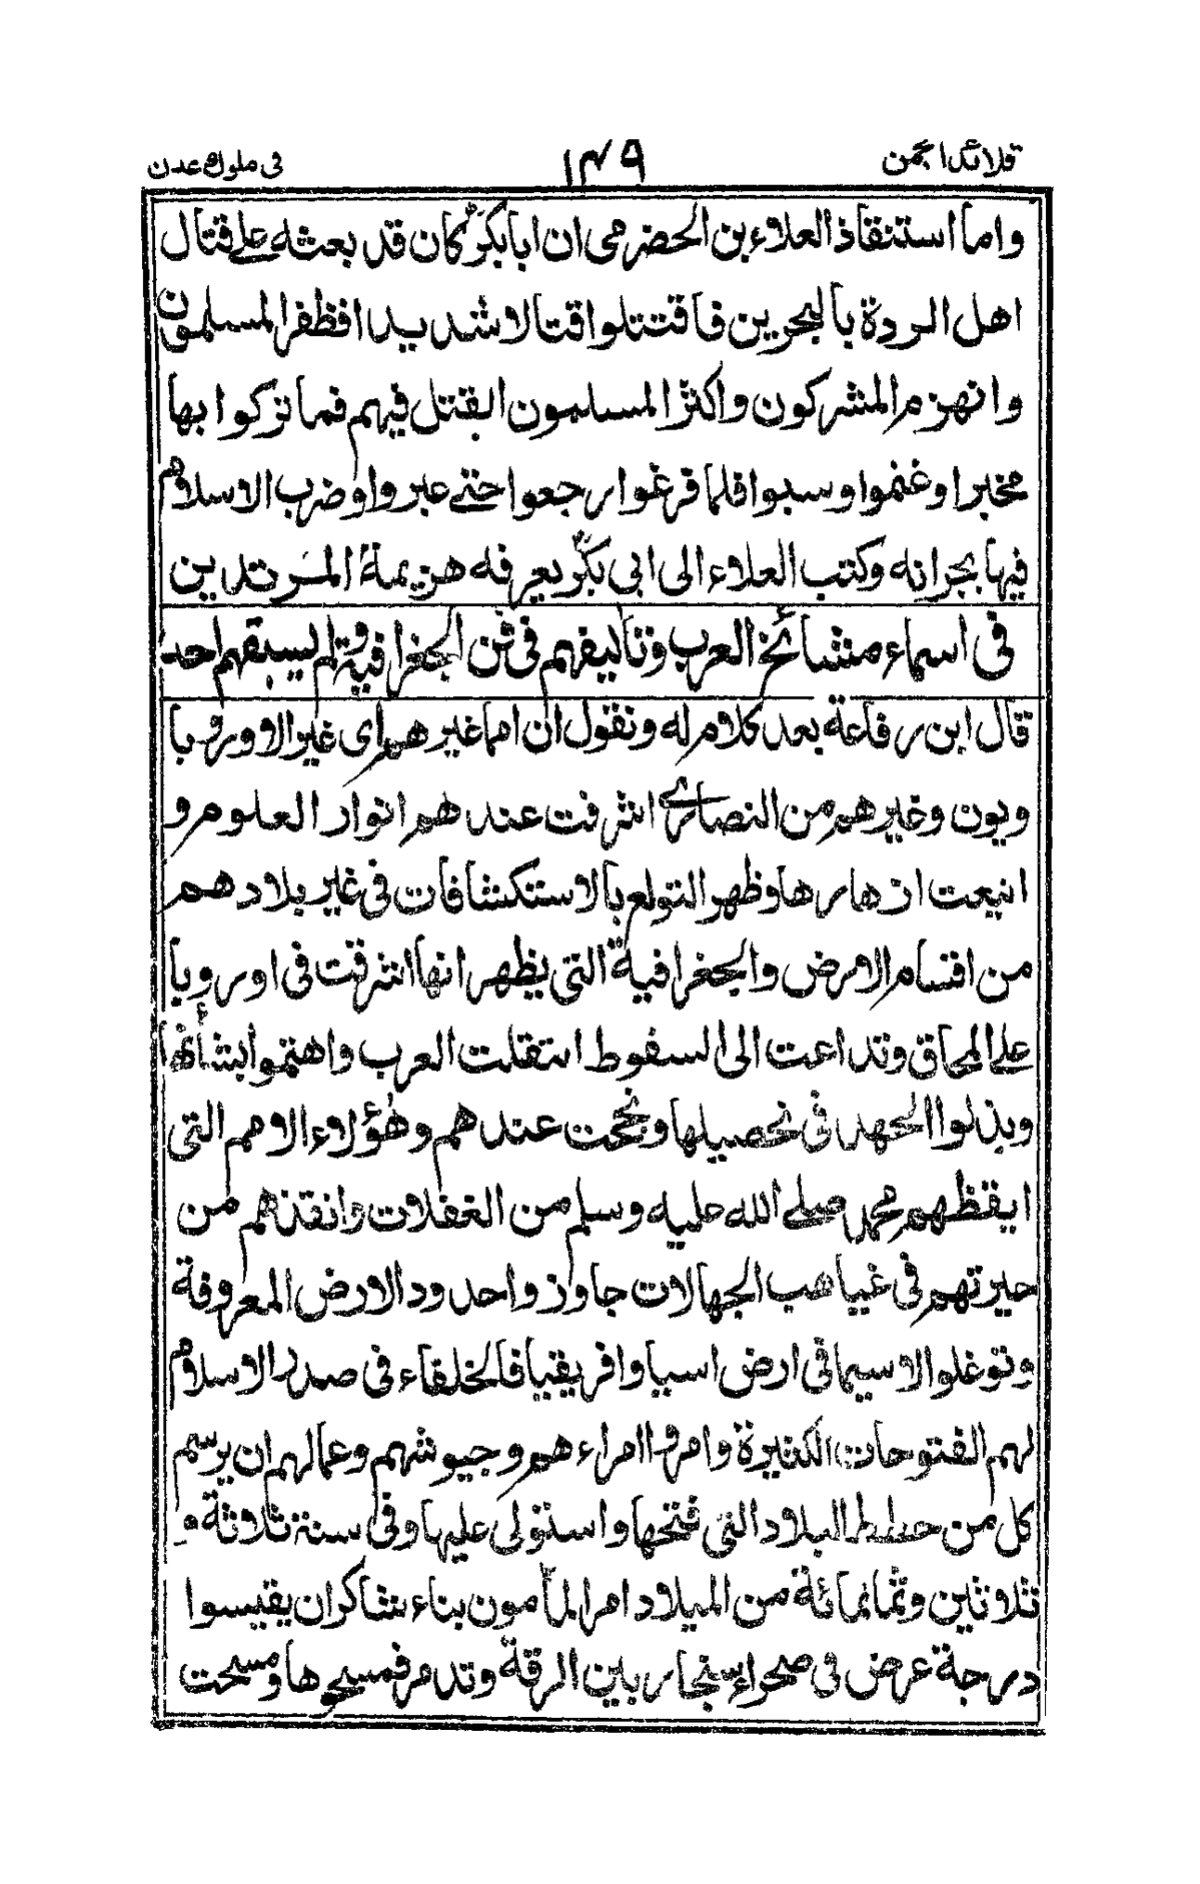 قلائد الجمن ١٤٩ في ملوك عدن
واما استنقاذ العلاء بن الحضرمي ان ابابكر كان قد بعثه على قتال
اهل الردة بالبحرين فاقتتلوا قتالا شديدا فظفر المسلمون
وانهزم المشركون واكثر المسلمون القتل فيهم فما تركوا بها
مخبرا وغنموا وسبوا فلما فرغوا رجعوا حتى عبروا وضرب الاسلام
فيها بجرانه وكتب العلاء الى ابي بكر يعرفه هزيمة المرتدين
في اسماء مشائخ العرب وتاليفهم في فن الجغرافية ولم يسبقهم احد
قال ابن رفاعة بعد كلام له ونقول ان امما غيرهم اى غير الاوروبا
ويون وغيرهم من النصارى اشرفت عندهم انوار العلوم و
انبعت ازهارها وظهر التولع بالاستكشافات في غير بلادهم
من اقسام الارض والجغرافية التي يظهر انها اشرقت في اوروبا
على المحاق وتداعت الى السقوط انتقلت العرب واهتموا بشأنها
وبذلوا الجهد في تحصيلها ونجحت عندهم وهؤلاء الامم التي
ايقظهم محمد صلى الله عليه وسلم من الغفلات وانقذهم من
حيرتهم في غياهب الجهالات جاوزوا حدود الارض المعروفة
وتوغلوا لاسيما في ارض اسيا وافريقيا فالخلفاء في صدر الاسلام
لهم الفتوحات الكثيرة وامروا امراءهم وجيوشهم وعمالهم ان يرسم
كل من خطط البلاد التي فتحها واستولى عليها وفي سنة ثلاثة و
ثلاثين وثمانمائة من الميلاد امر المأمون بناء شاكر ان يقيسوا
درجة عرض في صحراء سنجار بين الرقة وتدمر فمسحوها ومسحت